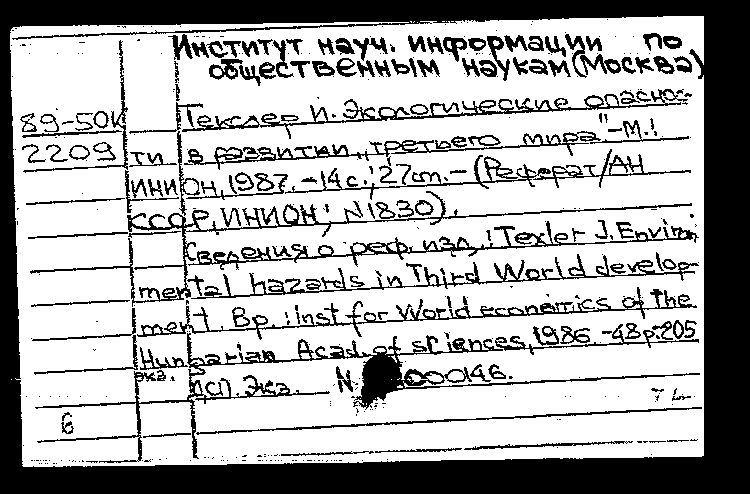 Институт науч. информации по
общественным наукам (Москва)
89-50к Текслер И. Экологические опаснос-
2209 ти в развитии „третьего мира"-М.:
ИНИОН, 1987. -14с.; 27cm. - (Реферат/АН
СССР, ИНИОН; N1830).
Сведения о реф. изд.: Texler J. Environ
mental hazards in Third World develop-
ment. Bp.: Inst for World economics of the
Hungarian Acad. of sciences, 1986. -48p. 205
экз.
ЦСП. Экз. N 000146.
6